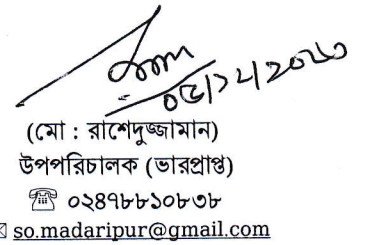 (মো : রাশেদুজ্জামান)
উপপরিচালক (ভারপ্রাপ্ত)
☏ ০২৪৭৮৮১০৮৩৮
so.madaripur@gmail.com